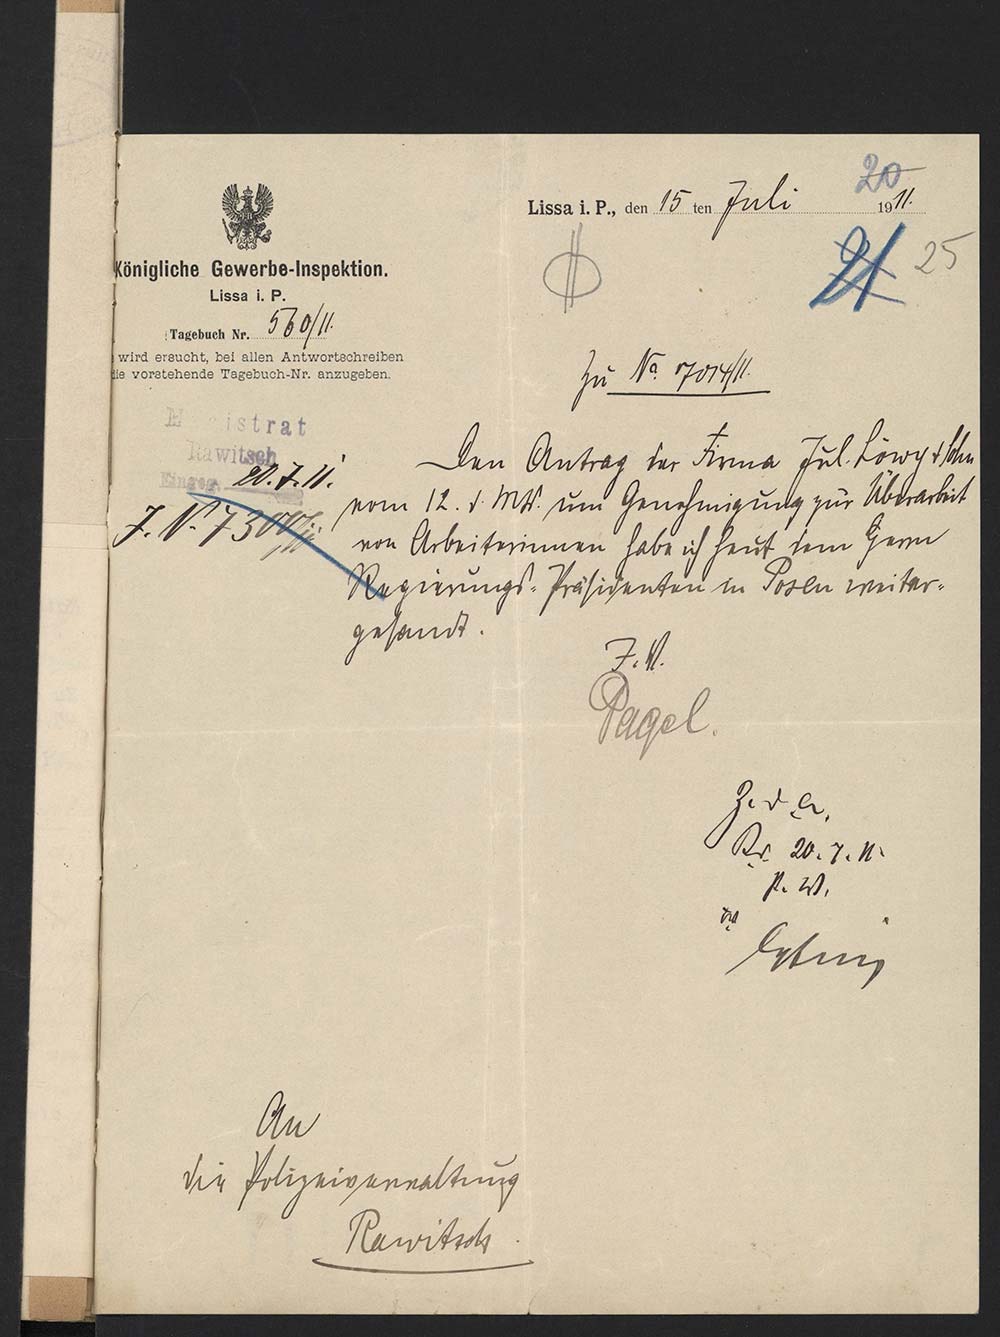 20
Lissa i. P., den 15 ten Juli 1911.
21 25
Königliche Gewerbe-Inspektion.
Lissa i. P.
Tagebuch Nr. 560/11.
wird ersucht, bei allen Antwortschreiben
die vorstehende Tagebuch-Nr. anzugeben.
zu No. 7014/11.
Magistrat
Rawitsch
Eingeg. 20.7.11.
J. N. 7300/11
Den Antrag der Firma Jul. Löwy & Sohn
vom 12. d. Mts. um Genehmigung zur Überarbeit
von Arbeiterinnen habe ich heut dem Herrn
Regierungs-Präsidenten in Posen weiter-
gesandt.
J. V.
Pagel.
Z. d. A.
R. 20.7.11.
P. V.
An
die Polizeiverwaltung
Rawitsch.